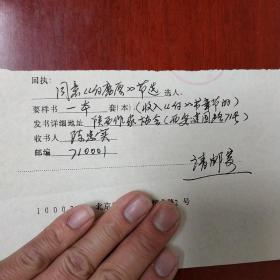 回执:
同意《白鹿原》节选 选入。
要样书 一本 套(本)(收入《白》书章节的)
发书详细地址 陕西作家协会(西安建国路71号)
收书人 陈忠实
邮编 710001
请邮寄
1000 北京 2号